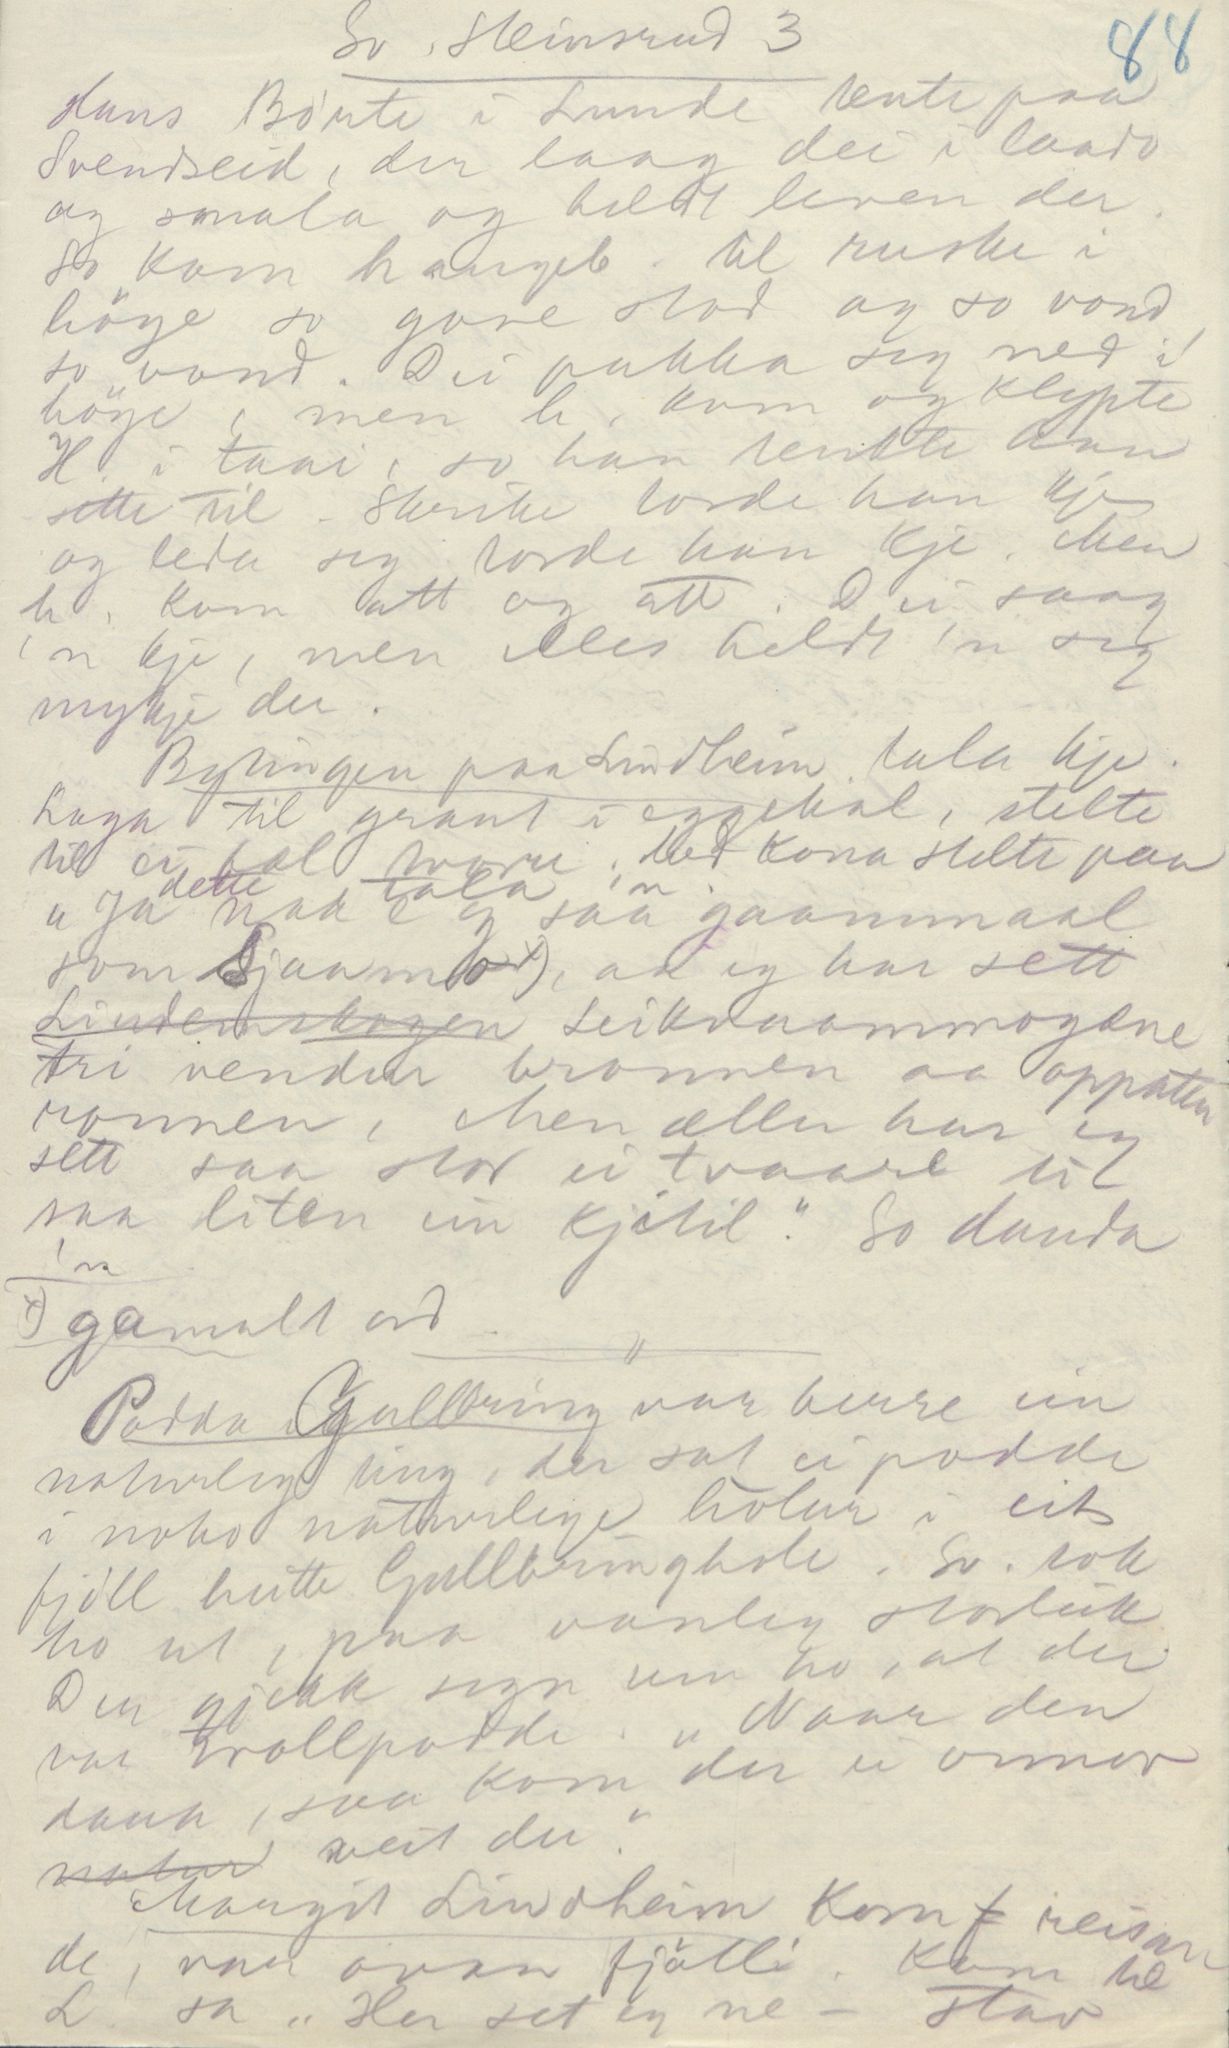 So. Steinsrud 3
88
Hans Börte i Lunde tente paa
Svendseid, der laag dei i laado
og smala og heldt leven der.
So kom haugeb. til ruske i
höye so gove stod og so vond,
so vond. Dei pakka seg ned i
höye, men h. kom og klypte
H. i taai, so han tenkte han
sette til. Skrike torde han kje
og leda seg torde han kje. Men
h. kom att og att. Dei saag
'n kje, men elles heldt 'n seg
mykje der.
Bytingen paa Lindheim tala kje.
Laga til graut i eggeskal, stelte
til ei tvore. Led Kona stelte paa
"Ja dette maa eg tala 'n saa gaammaal
som Sjaamo x), aa eg har sett
Lindemskogen Seikdaammogane
tri vendur bronnen aa oppatter
ronnen, Men aller har eg
sett saa stor ei tvaare til
saa liten ein kjetil." So dauda
'n
x) gamalt ord
Padda i Gullbring var berre ein
naturleg ting, der sat ei padde
i noko naturlege holur i eit
fjöll heitte Gullbringhole. So. tok
ho ut, paa vanleg storleik
Der gjekk segn um ho, at der
var trollpadde. "Naar den
dauа, saa kom der ei onnor
natur veit du."
Margit Lindheim Kom f reisan
de, var ovan fjölli. Kom te
L. sa "Her set eg ne - stav